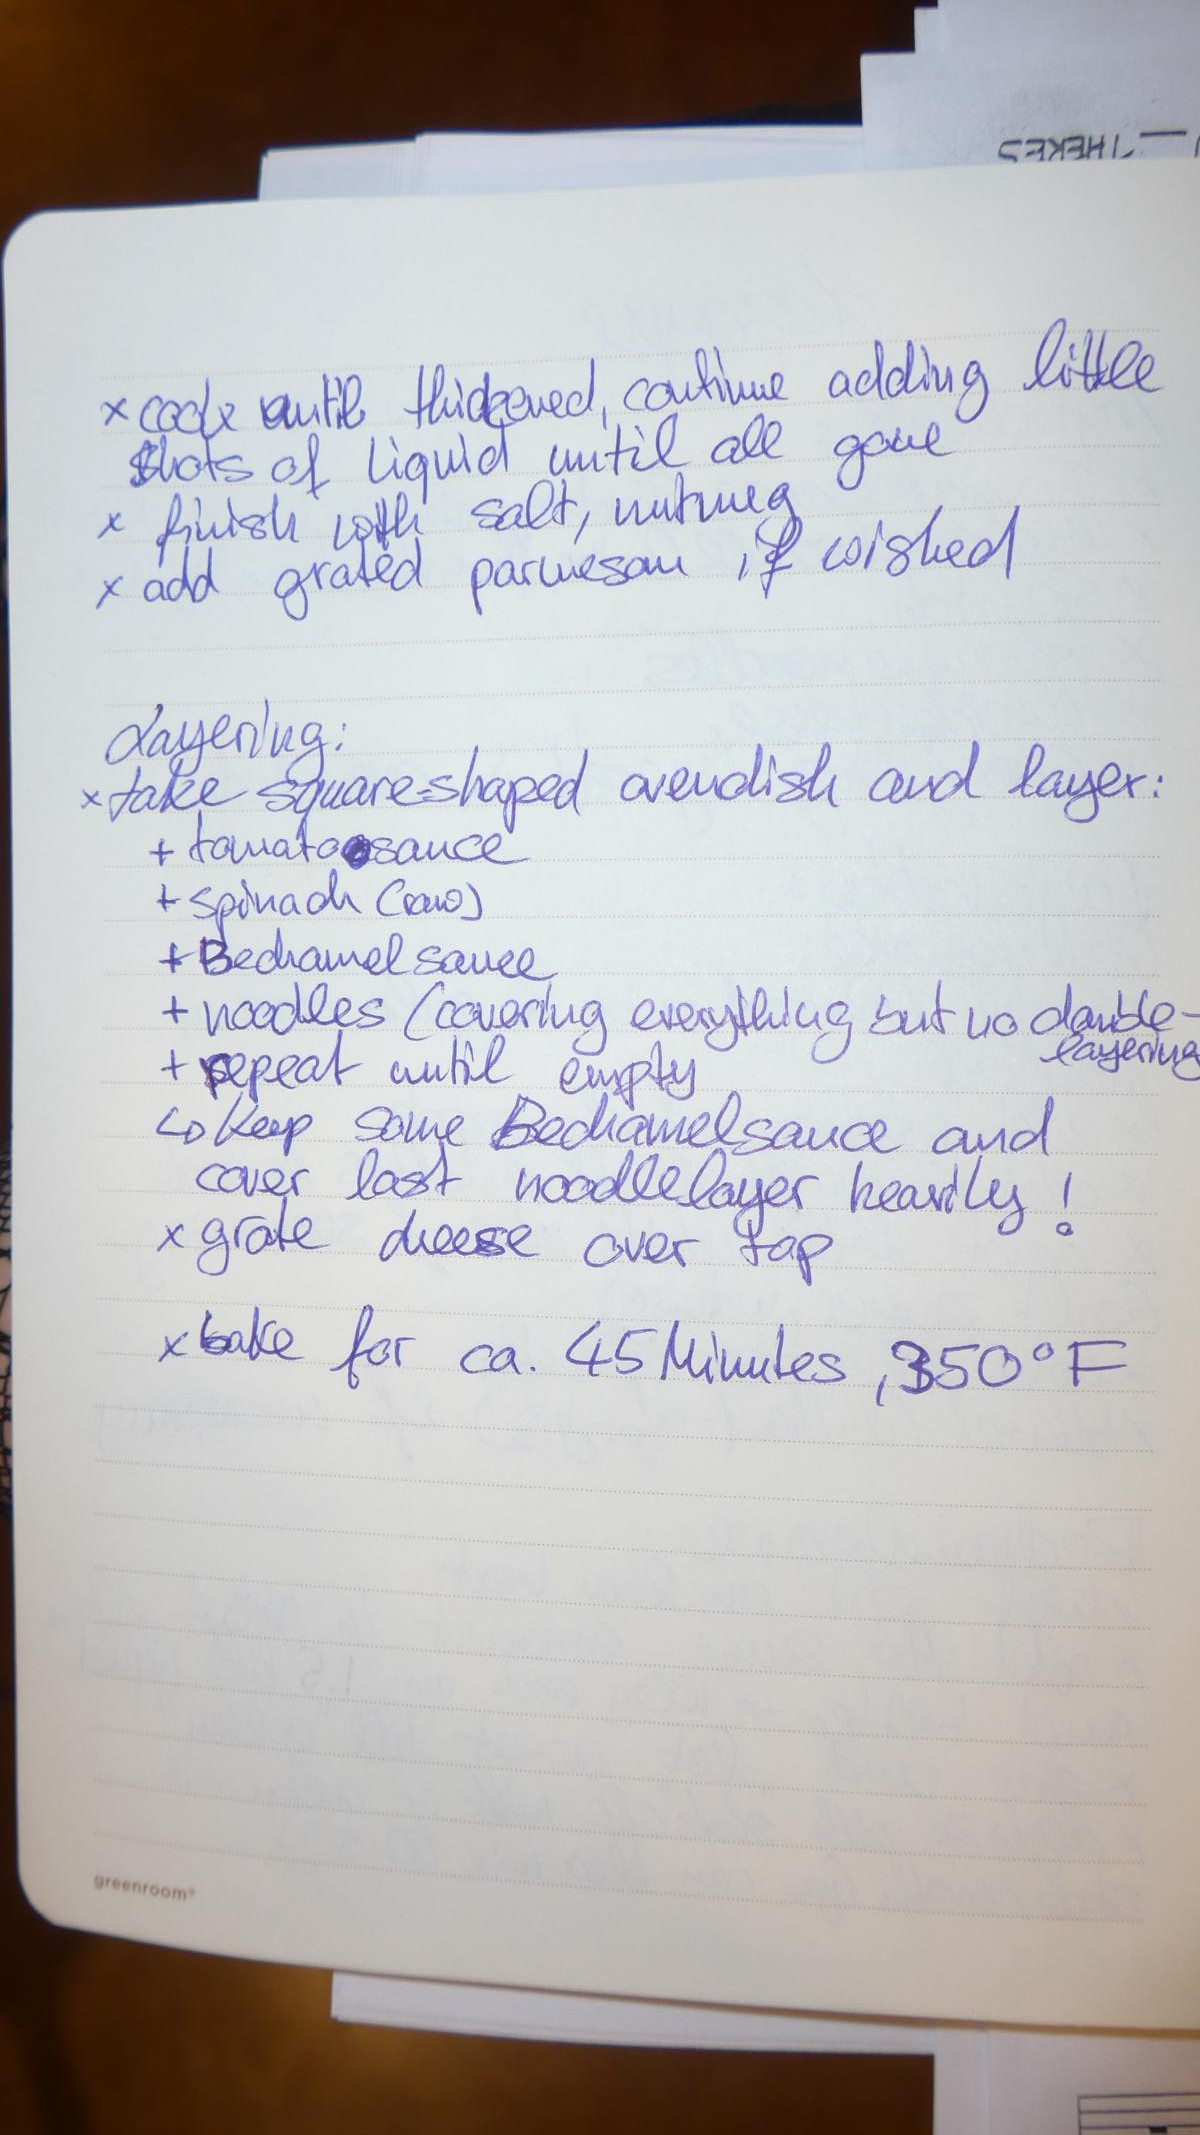 x cook until thickened, continue adding little
shots of liquid until all gone
x finish with salt, nutmeg
x add grated parmesan if wished
Layering:
x take square-shaped ovendish and layer:
+ tomatosauce
+ spinach (raw)
+ Bechamelsauce
+ noodles (covering everything but no double-
layering
+ repeat until empty
↳ keep some Bechamelsauce and
cover last noodlelayer heavily!
x grate cheese over top
x bake for ca. 45 Minutes, 350°F
greenroom®